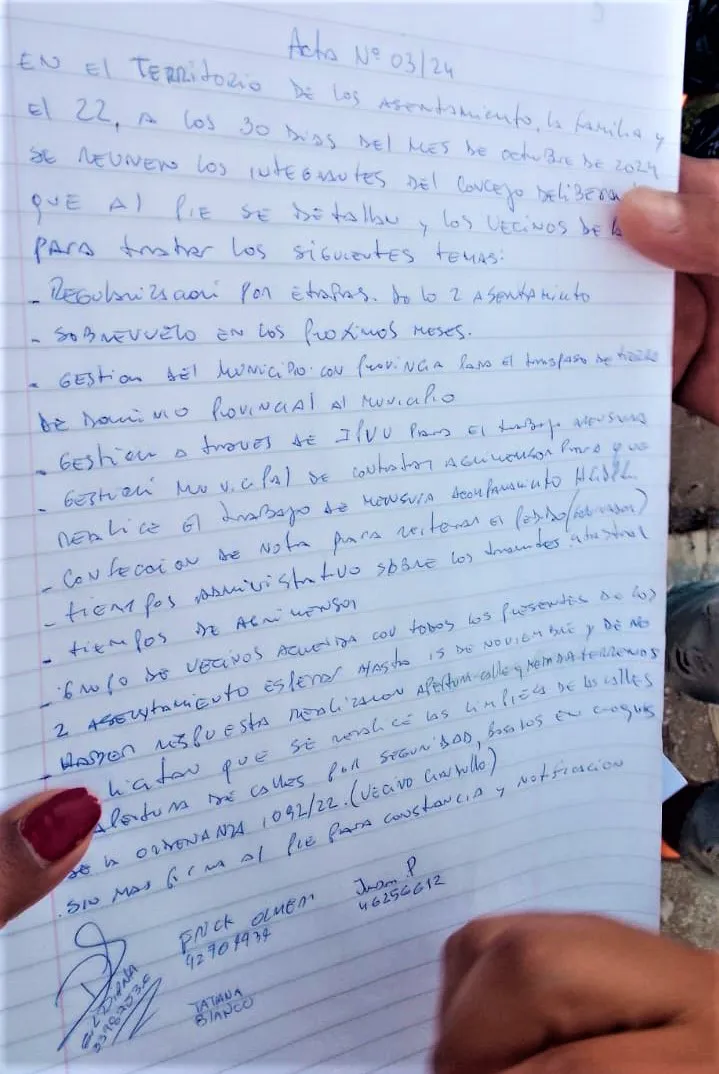 Acta Nº 03/24
EN El TERRitoRio DE los ASENtAmiENto, la familia y
El 22, A los 30 DIAS DEl MES DE octuBRE DE 2024
SE REUNEN los INtEGRANTES DEl CONCEJO DEliBERA
QUE Al PIE SE DEtAllAN y los VECINOS DE
PARA tratar los SIGUIENTES TEMAS:
- REGULARIZACIÓN POR EtAPAS. 2 ASENtAMIENto
- SOBREVUELO EN los PROXIMOS MESES.
- GEStion DEl MUNICIPIO CON PROVINCIA PARA El tRASPASO DE
DE DOMINIO PROVINCIAL Al MUNICIPIO
- GEStion A tRAVES DE IPVU PARA El tRABAJO
- GEStion MUNICIPAl DE CONtRAtAR AGRIMENSOR PARA QUE
REALICE El tRABAJO DE MENSURA ACOMPAÑAMIENTO
- CONFECCION DE NOtA PARA REITERAR El PEDIDO
- tIEMPOS ADMINIStRAtIVO SOBRE los tRAMItES
- tIEMPOS DE AGRIMENSOR
- GRUPO DE VECINOS ACUERDA CON tODOS los PRESENtES DE los
2 ASENtAMIENTO ESPERAR HASTA 15 DE NOVIEMBRE y DE NO
HABER RESPUESTA REALIZARAN APERtURA calle y TERRENOS
licitan QUE SE REALICE lAS lIMPIEZA DE las CAllES
APERtURA DE CALLES POR SEGURIDAD, EN CROQUIS
DE la ORDENANZA 1092/22. (VECINO)
SIN MAS FIRMA Al PIE PARA CONStANCIA y NOtIFICACION
ERICK
Juan P
46256612
DIANA
TATIANA
BIANCO